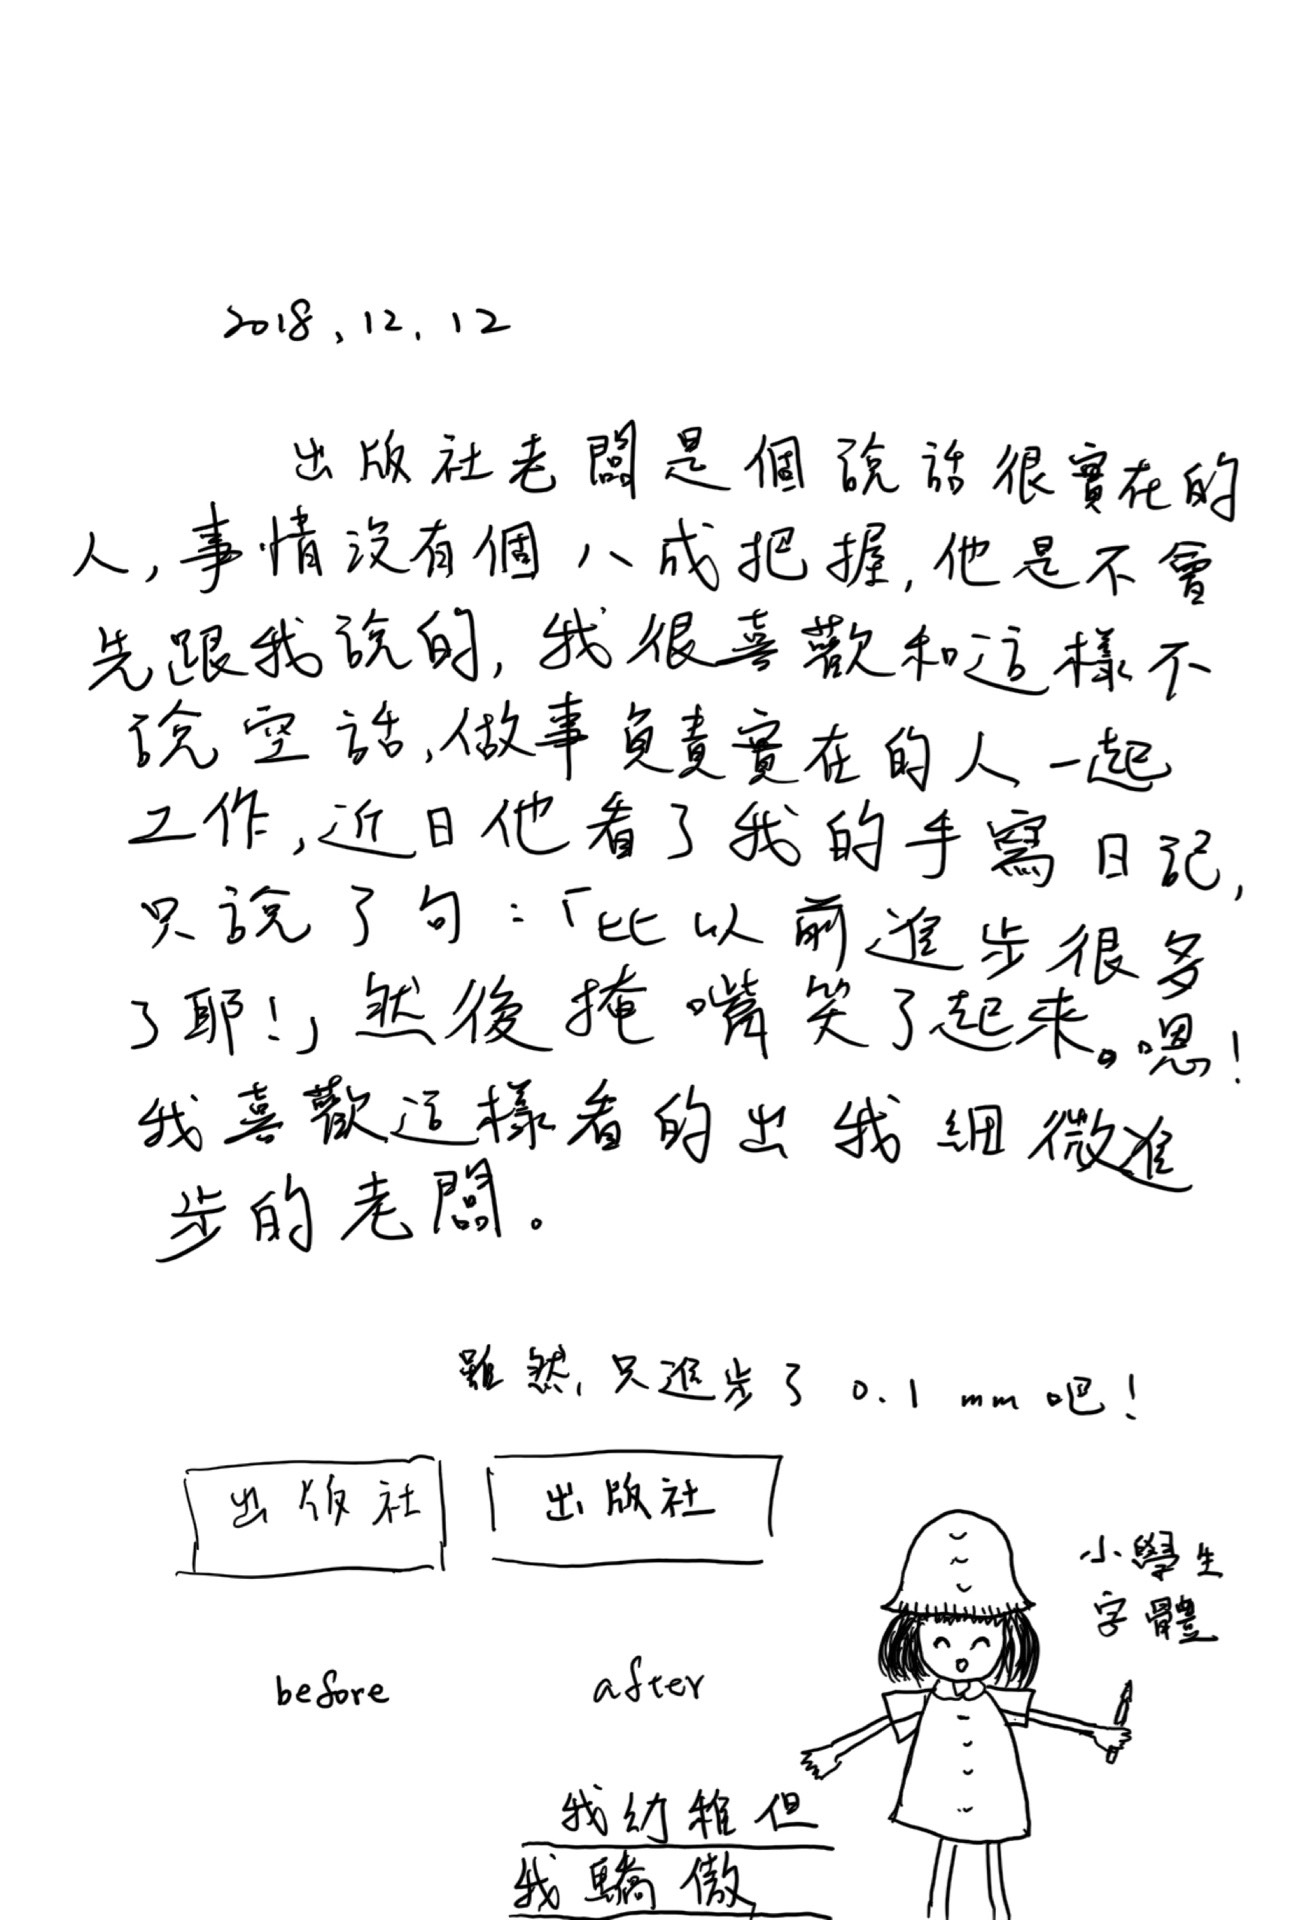 2018.12.12
出版社老闆是個說話很實在的
人,事情沒有個八成把握,他是不會
先跟我說的,我很喜歡和這樣不
說空話,做事負責實在的人一起
工作,近日他看了我的手寫日記,
只說了句:「比以前進步很多
了耶!」然後掩嘴笑了起來。嗯!
我喜歡這樣看的出我細微進
步的老闆。
雖然,只進步了0.1mm吧!
出版社
出版社
before
after
小學生
字體
我幼稚但
我驕傲